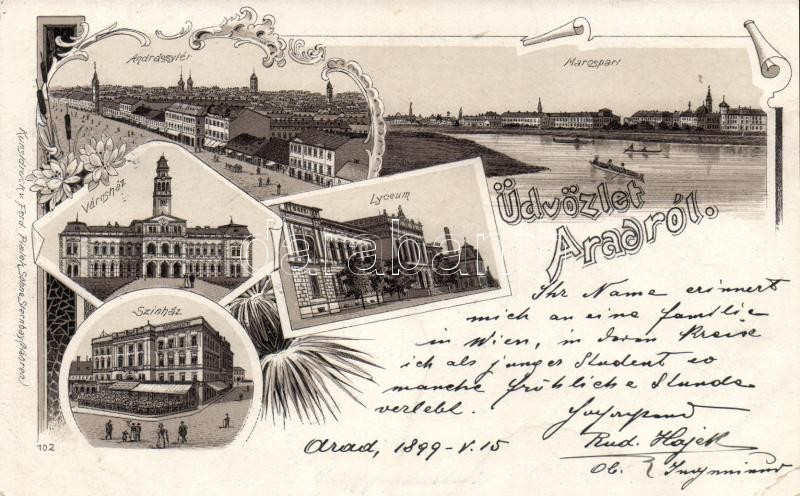 Andrássytér
Marospart
Városház
Lyceum
Üdvözlet
Aradról.
Színház
Kunstdruck v. Ferd. Pialek Söhne, Sternberg (Mähren)
darabanth.com
Ihr Name erinnert
mich an eine Familie
in Wien, in deren Kreise
ich als junger Student so
manche fröhliche Stunde
verlebt.
Rud. Hajek
Ob. Ingenieur
Arad, 1899-V.15
102